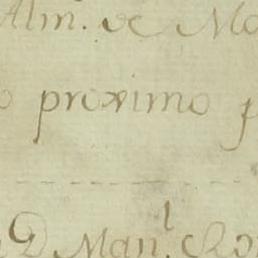 Alm. de Mo
o proximo p
D Man.l Ro